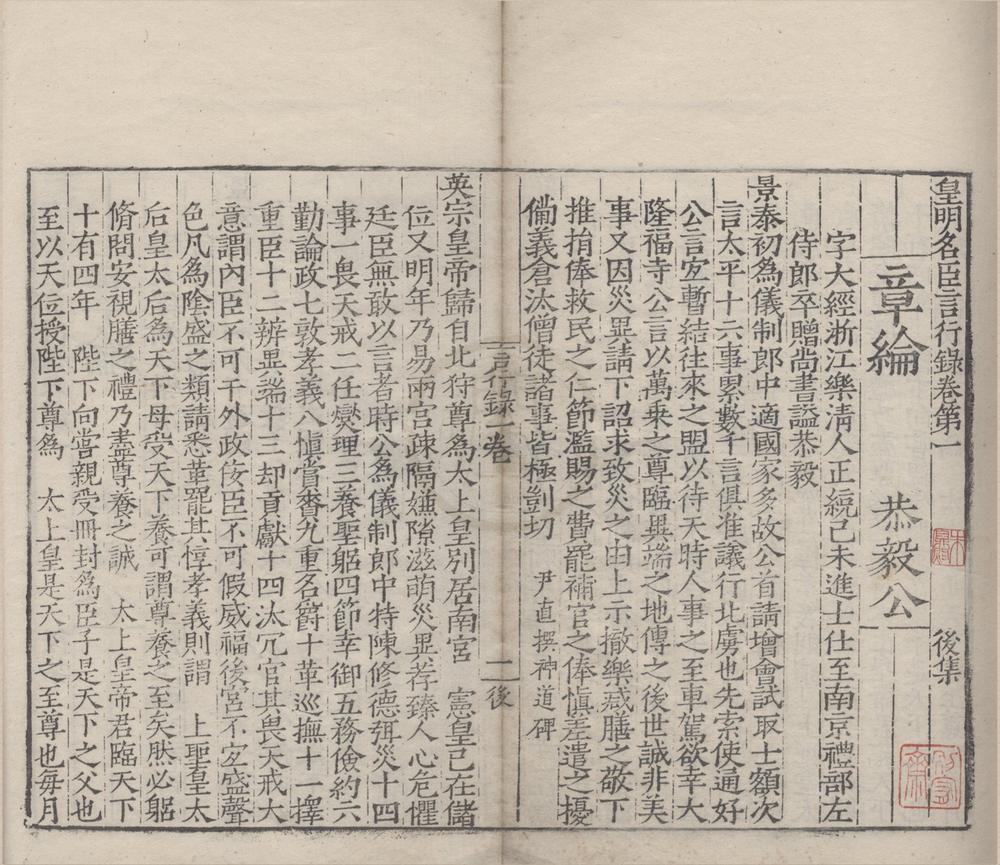 皇明名臣言行錄卷第一　後集
章綸　恭毅公
字大經浙江樂清人正統己未進士仕至南京禮部左
侍郎卒贈尚書謚恭毅
景泰初為儀制郎中適國家多故公首請增會試取士額次
言太平十六事累數千言俱准議行北虜也先索使通好
公言宐暫結往來之盟以待天時人事之至車駕欲幸大
隆福寺公言以萬乗之尊臨異端之地傳之後世誠非美
事又因災異請下詔求致災之由上示撤樂戒膳之敬下
推捐俸救民之仁節濫賜之費罷補官之俸慎差遣之擾
俻義倉汰僧徒諸事皆極剴切　尹直撰神道碑
言行錄一卷　二後
英宗皇帝歸自北狩尊為太上皇別居南宮　憲皇已在儲
位又明年乃易兩宮疎隔嫌隙滋萌災異荐臻人心危懼
廷臣無敢以言者時公為儀制郎中特陳修德弭災十四
事一畏天戒二任爕理三養聖躬四節幸御五務儉約六
勤論政七敦孝義八慎賞賚九重名爵十革巡撫十一擇
重臣十二辨異端十三却貢獻十四汰冗官其畏天戒大
意謂內臣不可干外政佞臣不可假威福後宮不宐盛聲
色凡為陰盛之類請悉革罷其惇孝義則謂　上聖皇太
后皇太后為天下母受天下養可謂尊養之至矣然必躬
脩問安視膳之禮乃盡尊養之誠　太上皇帝君臨天下
十有四年　陛下向嘗親受冊封為臣子是天下之父也
至以天位授陛下尊為　太上皇是天下之至尊也每月